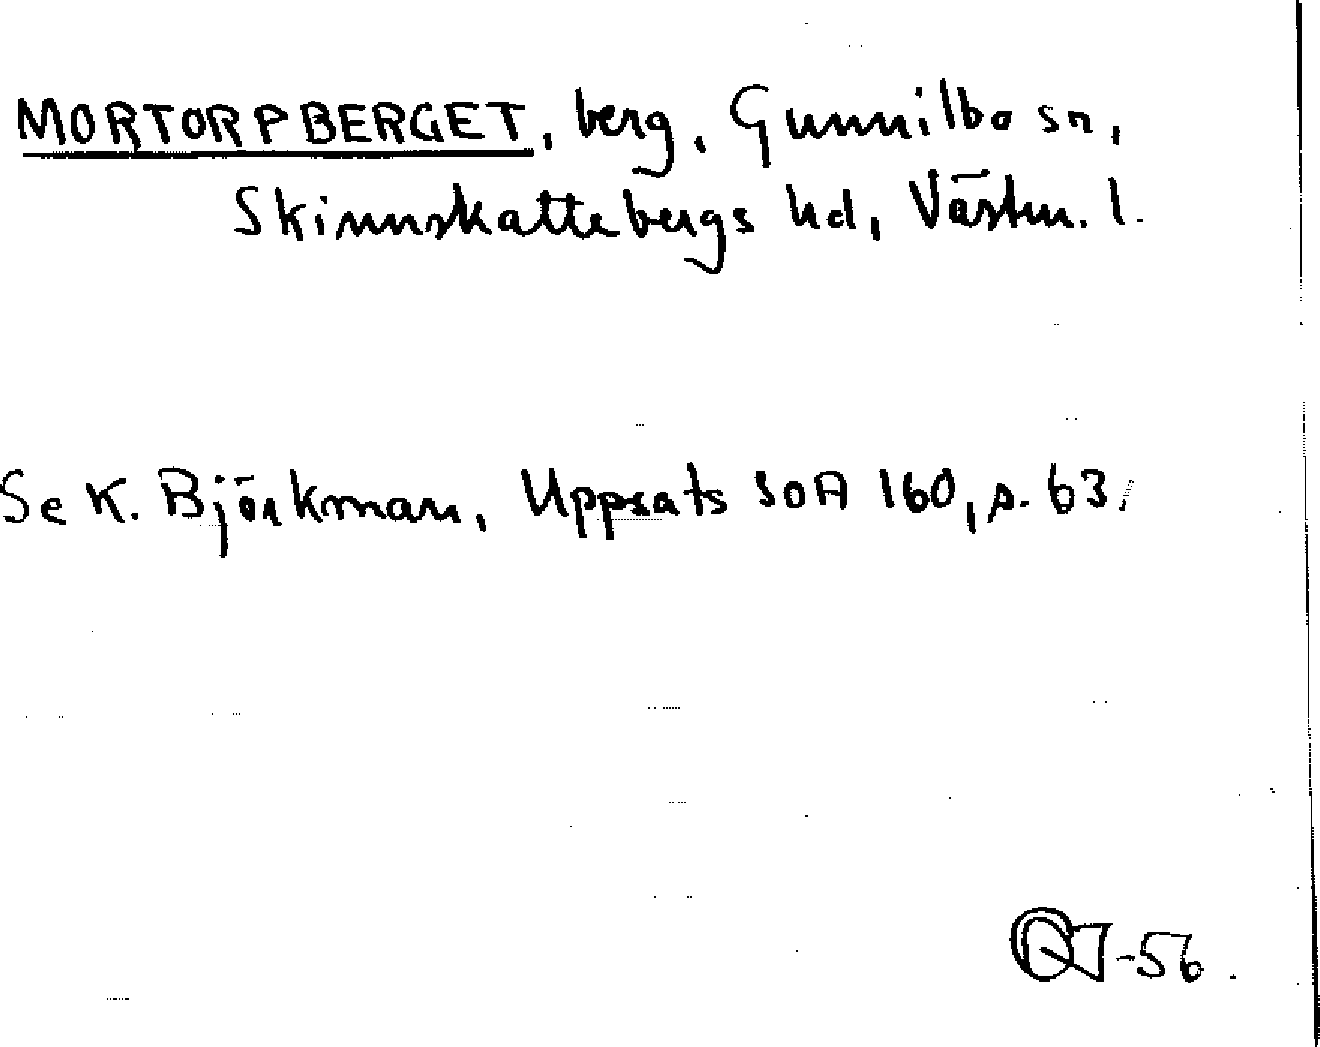 MORTORPBERGET, berg, Gunnilbo sn,
Skinnskattebergs hd, Västm. l.
Se K. Björkman, Uppsats SOA 160, s. 63.
-56.